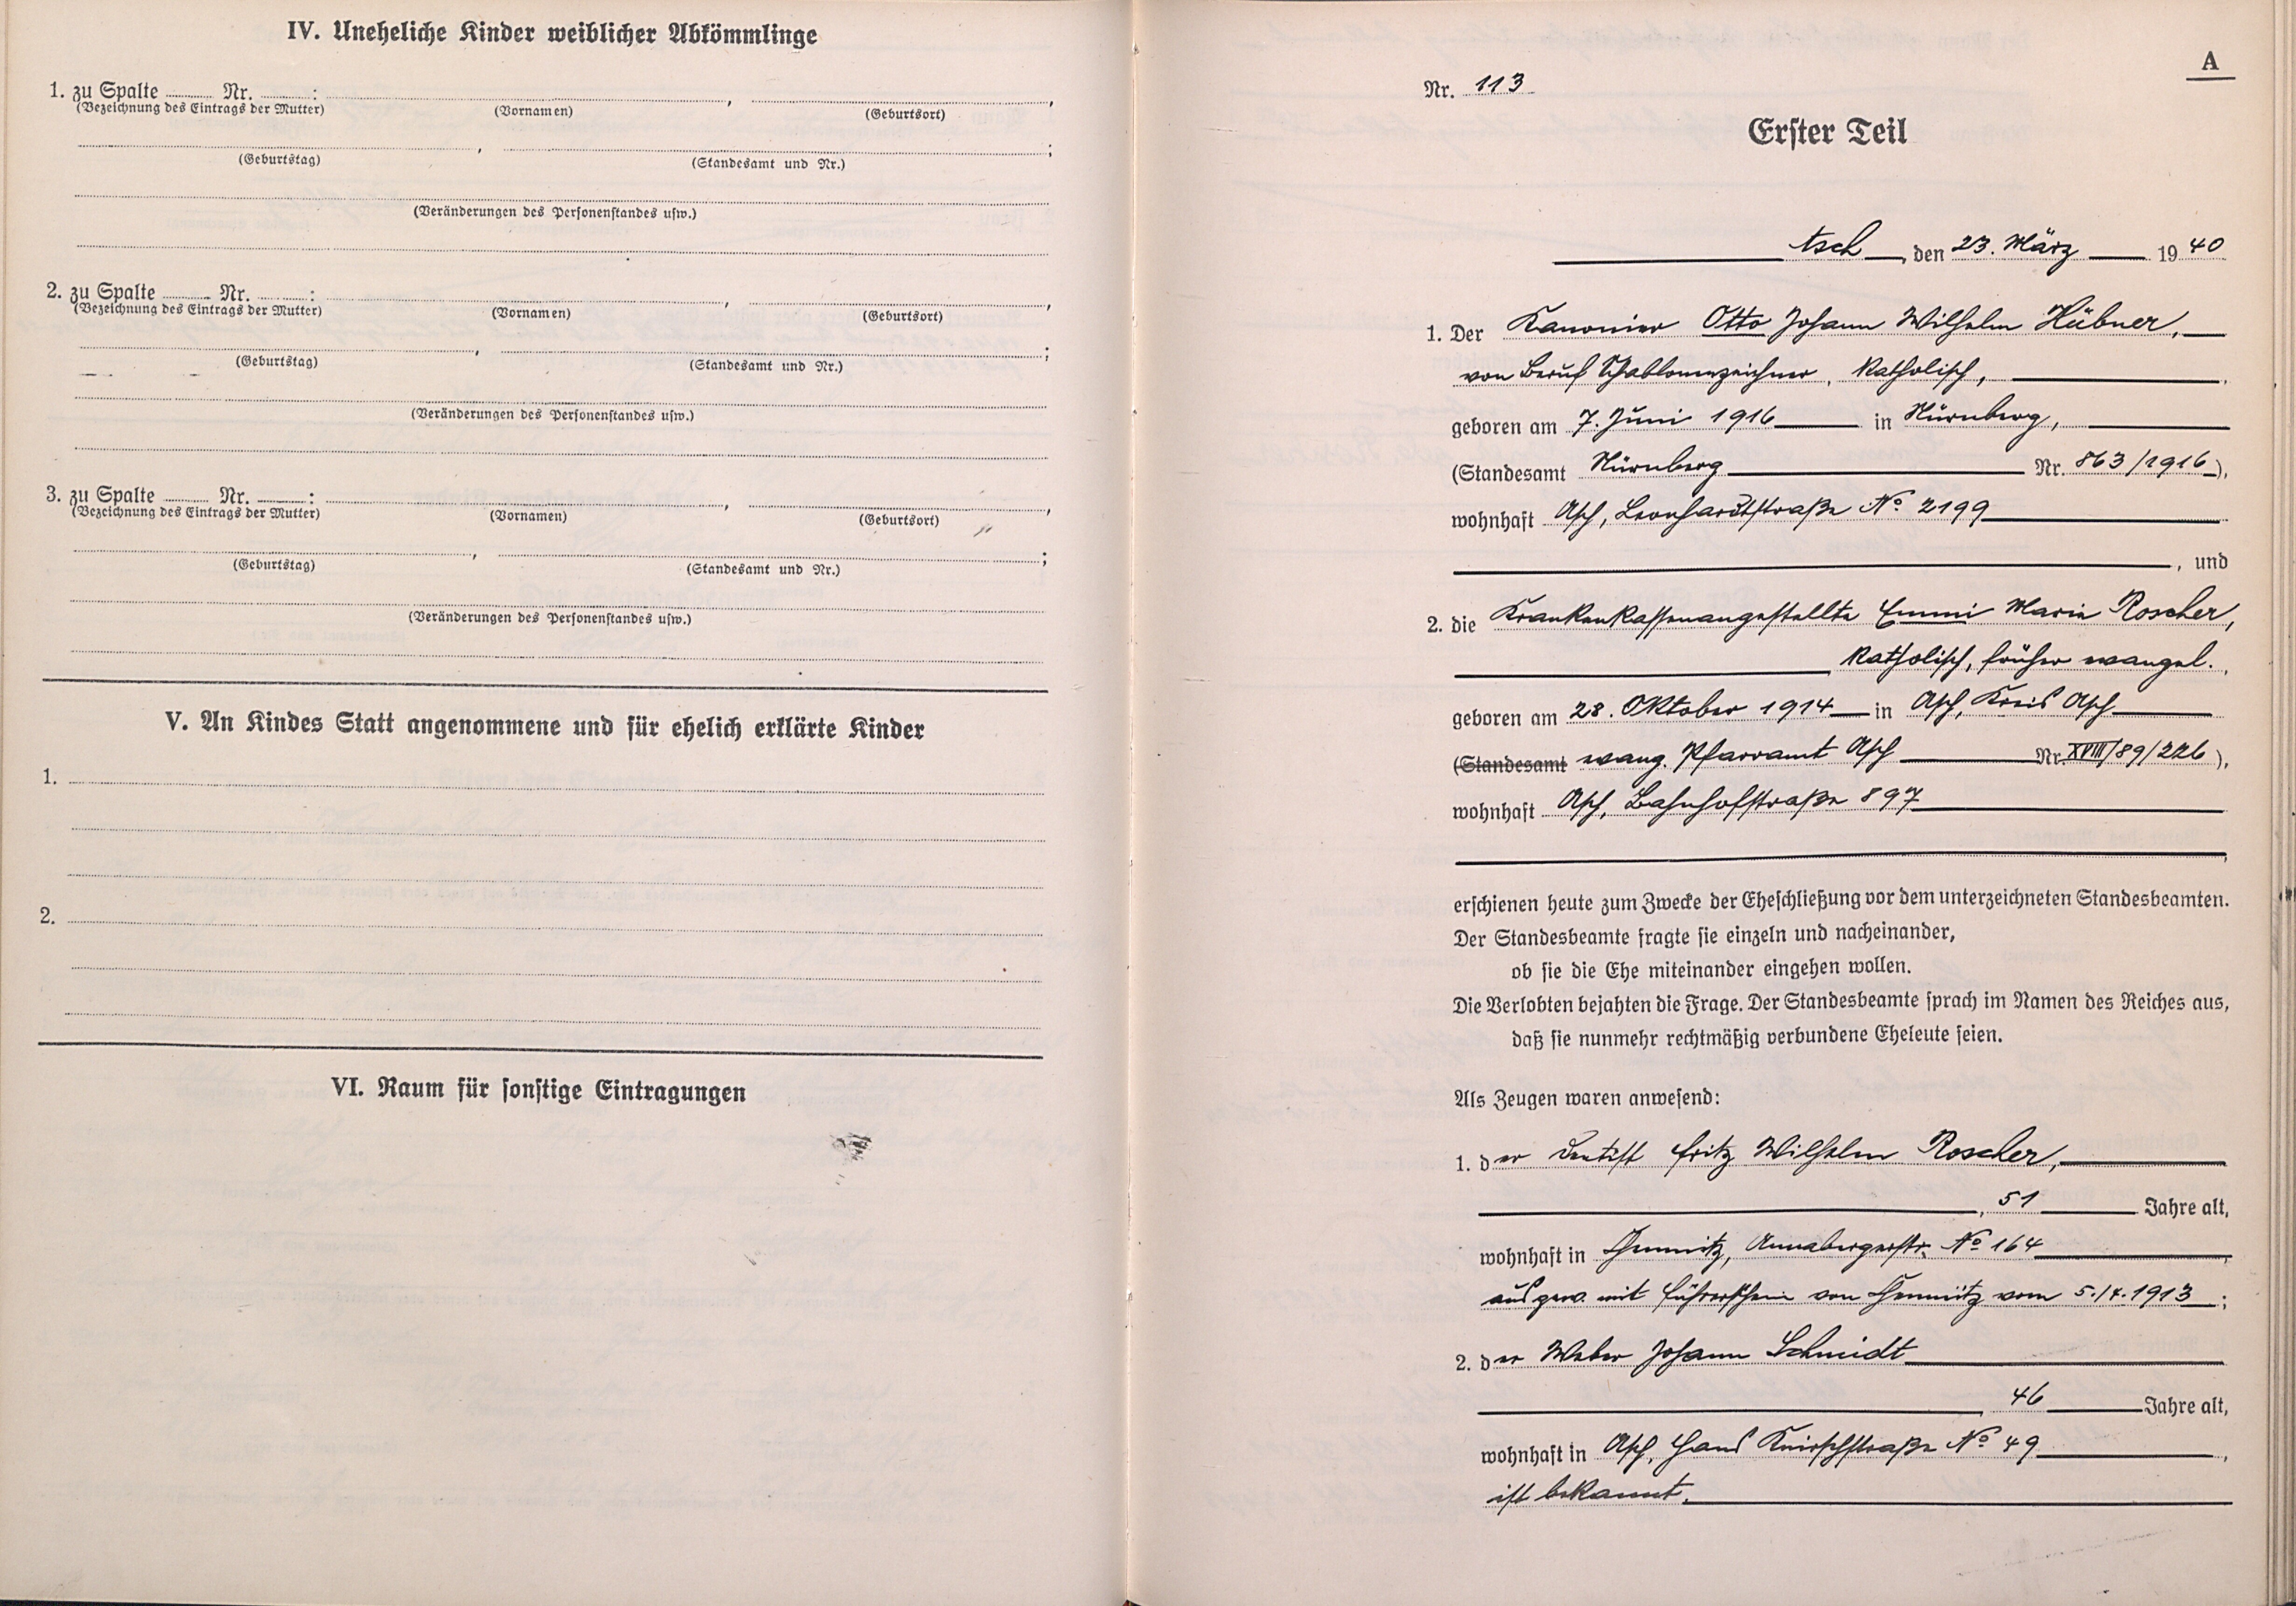 IV. Uneheliche Kinder weiblicher Abkömmlinge
1. zu Spalte ........ Nr. ........:
(Bezeichnung des Eintrags der Mutter) (Vornamen) (Geburtsort)
(Geburtstag) (Standesamt und Nr.)
(Veränderungen des Personenstandes usw.)
2. zu Spalte ........ Nr. ........:
(Bezeichnung des Eintrags der Mutter) (Vornamen) (Geburtsort)
(Geburtstag) (Standesamt und Nr.)
(Veränderungen des Personenstandes usw.)
3. zu Spalte ........ Nr. ........:
(Bezeichnung des Eintrags der Mutter) (Vornamen) (Geburtsort)
(Geburtstag) (Standesamt und Nr.)
(Veränderungen des Personenstandes usw.)
V. An Kindes Statt angenommene und für ehelich erklärte Kinder
1.
2.
VI. Raum für sonstige Eintragungen
A
Nr. 113
Erster Teil
Asch, den 23. März 1940
1. Der Kanonier Otto Johann Wilhelm Hübner,
von Beruf Schablonenzeichner, katholisch,
geboren am 7. Juni 1916 in Nürnberg,
(Standesamt Nürnberg Nr. 863/1916),
wohnhaft Asch, Leonhardtstraße No 2199
, und
2. die Krankenkassenangestellte Emmi Maria Roscher,
katholisch, früher evangel.
geboren am 28. Oktober 1914 in Asch, Kreis Asch
(Standesamt evang. Pfarramt Asch Nr. XVIII/89/226),
wohnhaft Asch, Bahnhofstraße 897
erschienen heute zum Zwecke der Eheschließung vor dem unterzeichneten Standesbeamten.
Der Standesbeamte fragte sie einzeln und nacheinander,
ob sie die Ehe miteinander eingehen wollen.
Die Verlobten bejahten die Frage. Der Standesbeamte sprach im Namen des Reiches aus,
daß sie nunmehr rechtmäßig verbundene Eheleute seien.
Als Zeugen waren anwesend:
1. der Dentist Fritz Wilhelm Roscher,
, 51 Jahre alt,
wohnhaft in Chemnitz, Annabergerstr. No 164
ausgew. mit Führerschein von Chemnitz vom 5./4.1913;
2. der Weber Johann Schmidt
46 Jahre alt,
wohnhaft in Asch, Hans Knirschstraße No 49,
ist bekannt.